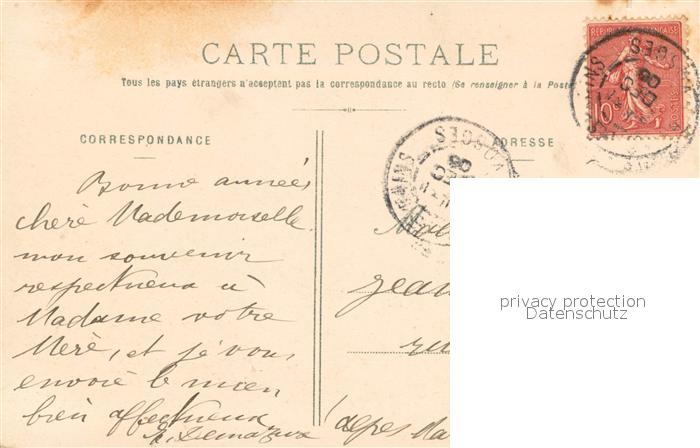 CARTE POSTALE
Tous les pays étrangers n'acceptent pas la correspondance au recto (Se renseigner à la Poste
CORRESPONDANCE
ADRESSE
RÉPUBLIQUE FRANÇAISE
10
POSTES
VOSGES
08
Bonne année,
chère Mademoiselle
mon souvenir
respectueux à
Madame votre
Mère, et je vous
envoie le mien
bien affectueux
Jean
alpes Ma
privacy protection
Datenschutz